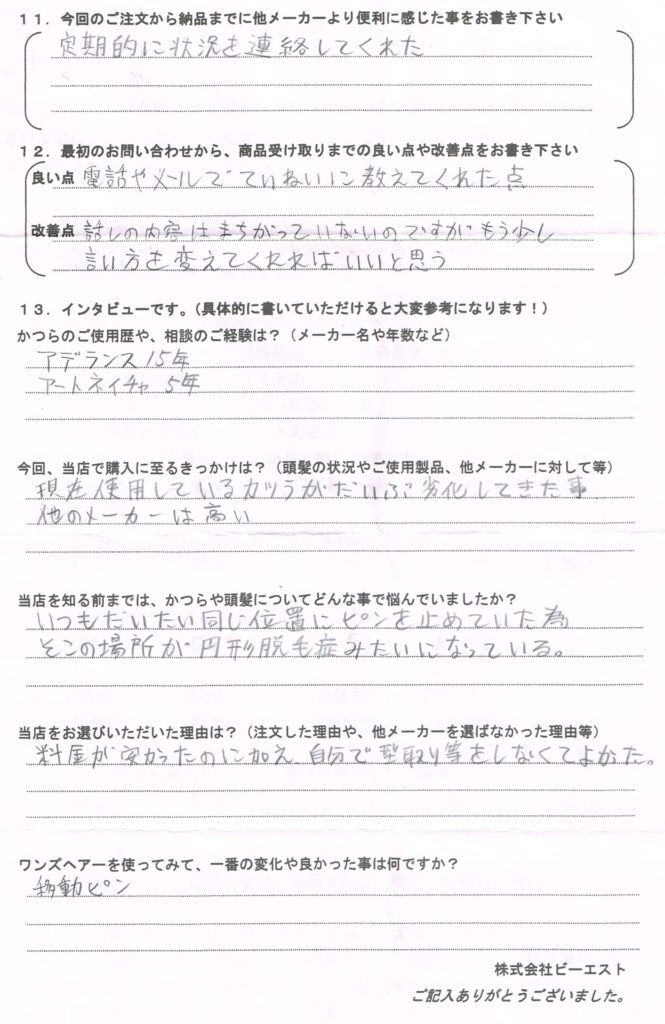 11．今回のご注文から納品までに他メーカーより便利に感じた事をお書き下さい
定期的に状況を連絡してくれた
12．最初のお問い合わせから、商品受け取りまでの良い点や改善点をお書き下さい
良い点 電話やメールでていねいに教えてくれた点
改善点 話しの内容はまちがっていないのですがもう少し
言い方を変えてくれればいいと思う
13．インタビューです。（具体的に書いていただけると大変参考になります！）
かつらのご使用歴や、相談のご経験は？（メーカー名や年数など）
アデランス 15年
アートネイチャ 5年
今回、当店で購入に至るきっかけは？（頭髪の状況やご使用製品、他メーカーに対して等）
現在使用しているカツラがだいぶ劣化してきた事
他のメーカーは高い
当店を知る前までは、かつらや頭髪についてどんな事で悩んでいましたか？
いつもだいたい同じ位置にピンを止めていた為
そこの場所が円形脱毛症みたいになっている。
当店をお選びいただいた理由は？（注文した理由や、他メーカーを選ばなかった理由等）
料金が安かったのに加え、自分で型取り等をしなくてよかった。
ワンズヘアーを使ってみて、一番の変化や良かった事は何ですか？
移動ピン
株式会社ビーエスト
ご記入ありがとうございました。